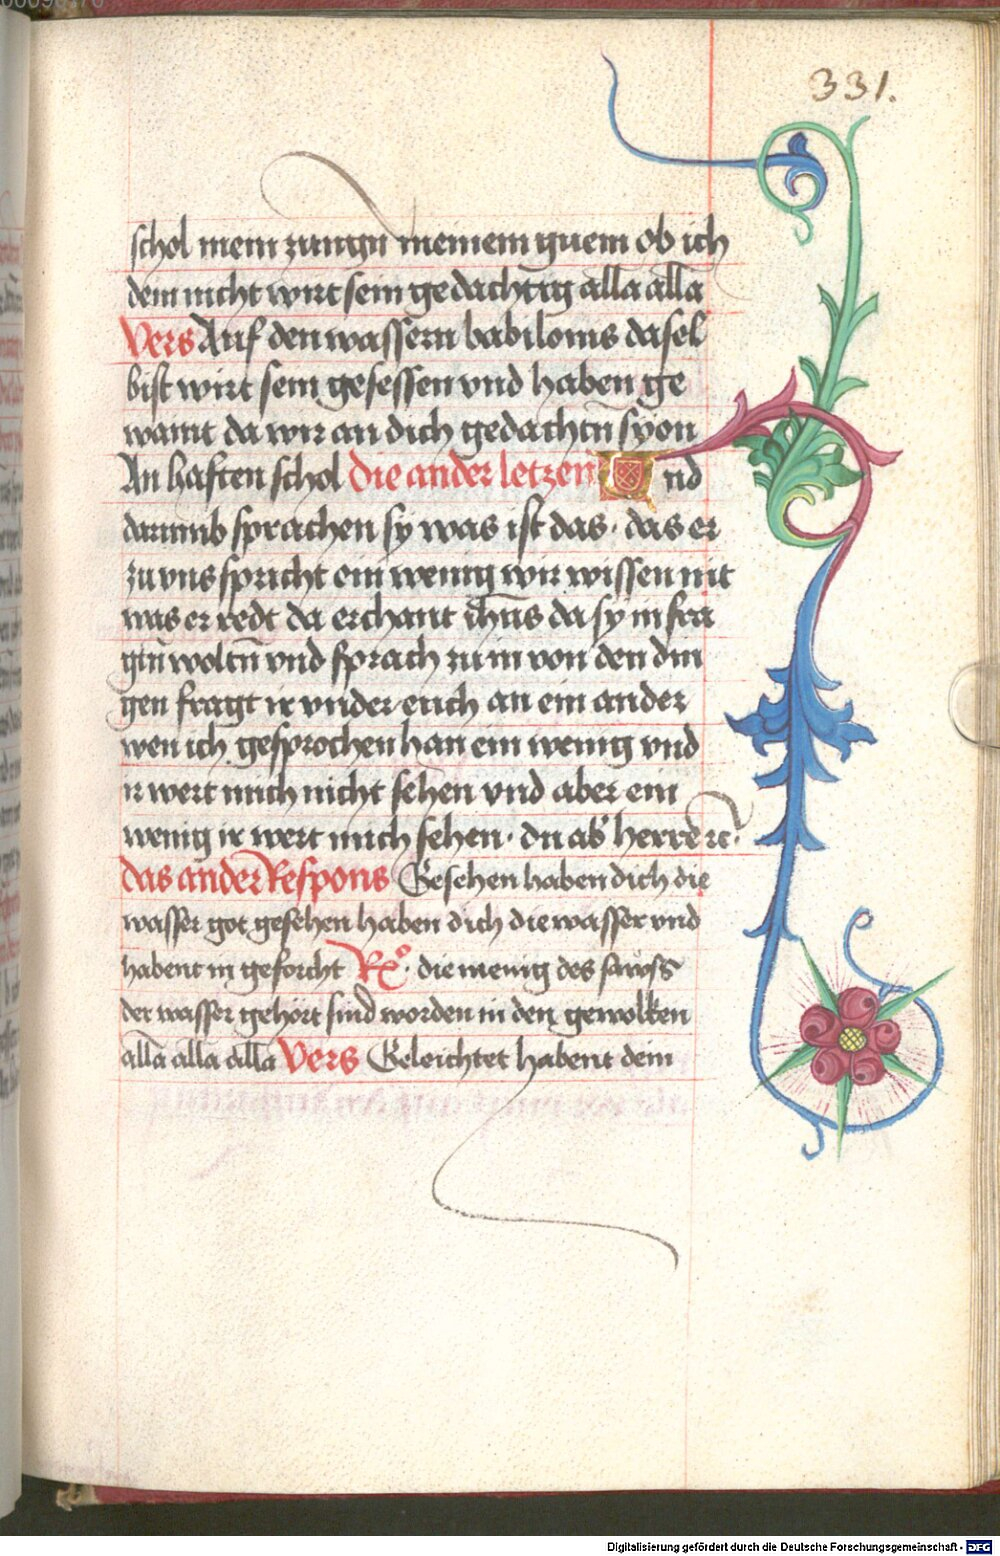 331.
schol mein zungn meinem guem ob ich
dem nicht wirt sein gedachtig alla alla
Vers Auf den wassern babilonis dasel
bist wirt sein gesessen vnd haben ge
waint da wir an dich gedachtn syon
An haften schol Die ander letzen Und
darumb sprachen sy was ist das · das er
zu vns spricht ein wenig wir wissen nit
was er redt da erchant ihus da sy in fra
gtn woltn vnd sprach zu in von den din
gen fragt ir vnder euch an ein ander
wen ich gesprochen han ein wenig vnd
ir wert mich nicht sehen vnd aber ein
wenig ir wert mich sehen · du ab herre rc·
das ander Respons Gesehen haben dich die
wasser got gesehen haben dich die wasser vnd
habent in geforcht Rx° · die menig des sawss
der wasser gehört sind worden in den gewolken
alla alla alla Vers Geleichtet habent dein
Digitalisierung gefördert durch die Deutsche Forschungsgemeinschaft - DFG